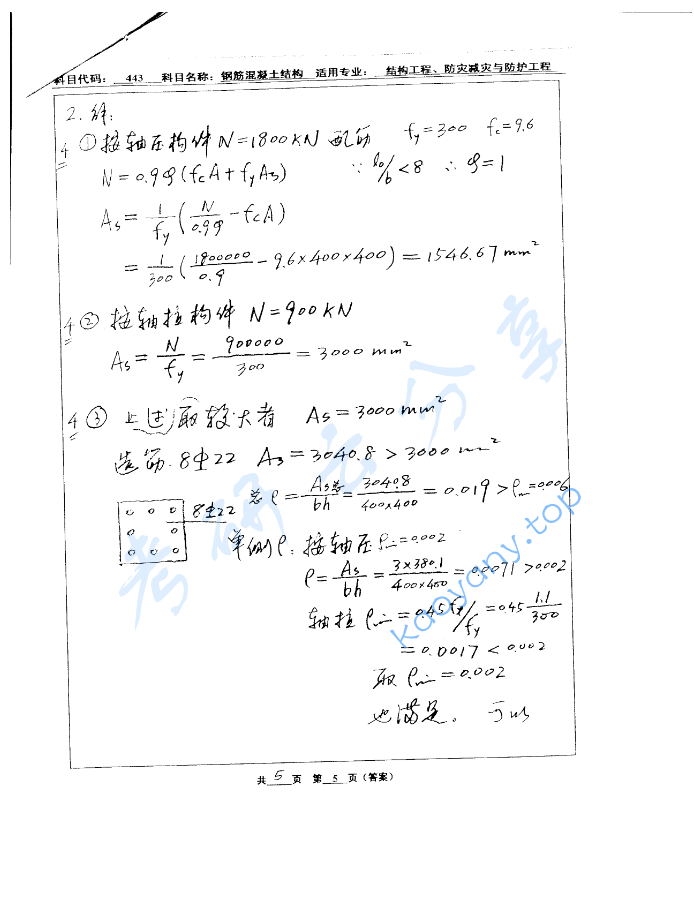 科目代码： 443 科目名称：钢筋混凝土结构 适用专业： 结构工程、防灾减灾与防护工程
2. 解：
4 ① 按轴压构件 N=1800KN 配筋 fy=300 fc=9.6
N=0.9φ(fcA+fyAs) ∵ l0/b<8 ∴ φ=1
As=1/fy(N/0.9φ-fcA)
=1/300(1800000/0.9-9.6×400×400)=1546.67mm²
4 ② 按轴拉构件 N=900KN
As=N/fy=900000/300=3000mm²
4 ③ 上述取较大者 As=3000mm²
选筋.8Φ22 As=3040.8>3000mm²
总ρ=As总/bh=3040.8/400×400=0.019>ρmin=0.006
8Φ22
单侧ρ：按轴压ρmin=0.002
ρ=As/bh=3×380.1/400×400=0.0071>0.002
轴拉ρmin=0.45ft/fy=0.45 1.1/300
=0.0017<0.002
取ρmin=0.002
也满足。可以
共 5 页 第 5 页（答案）
考研分享
kaoyany.top